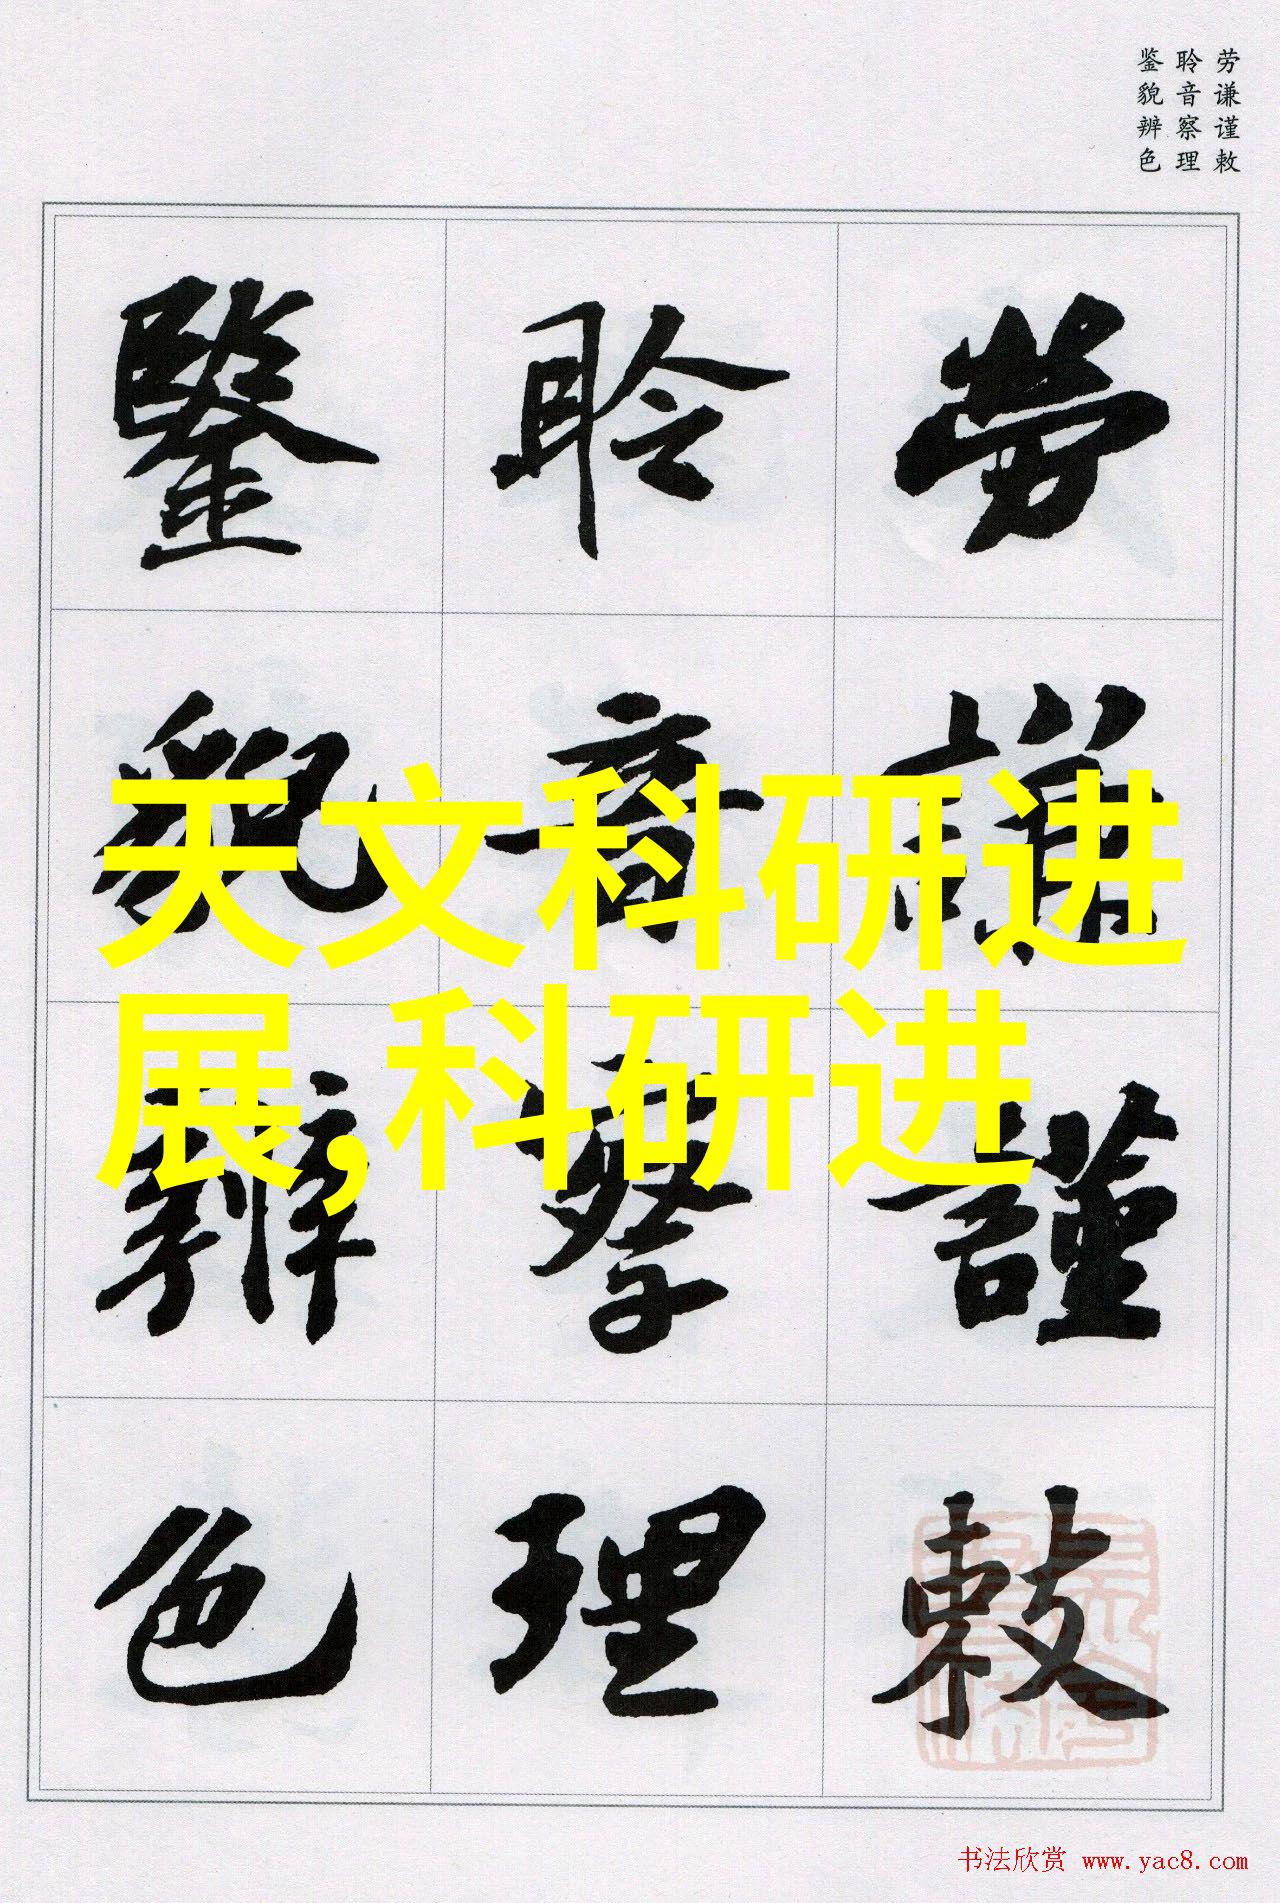 劳谦谨敕
聆音察理
鉴貌辨色
勞謙謹敕
聆音察理
鑒貌辨色
天文科研进
展,科研进
书法欣赏 www.yac8.com